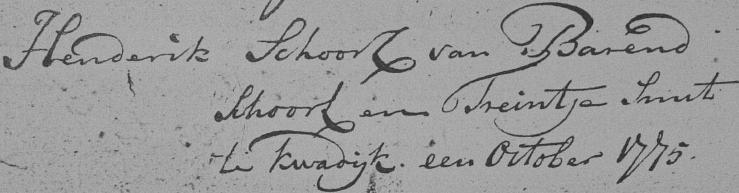 Henderik Schoorl van Barend
Schoorl en Treintje Smit
te Kwadijk. een October 1775.